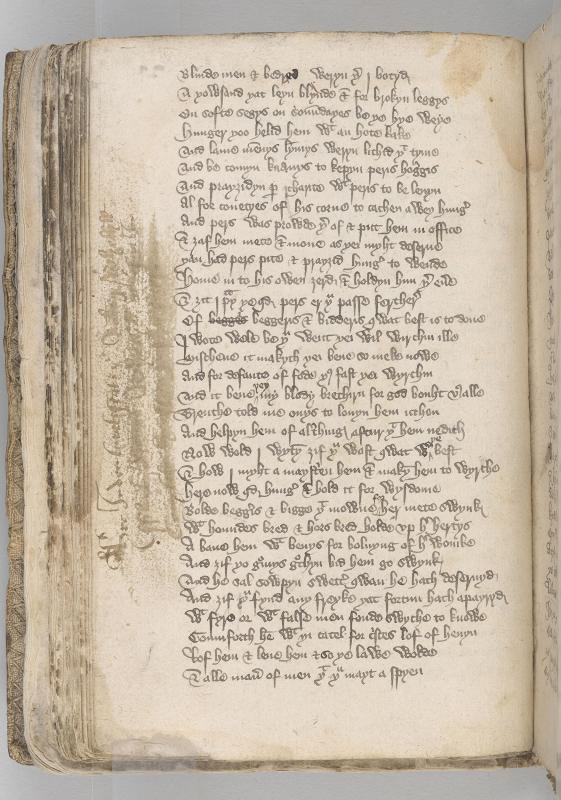 Blinde men & bedred weryn þt I botyd
A þowsand yat leyn blynde & for brokyn leggys
On softe segys on sonndayes be ye hye weye
Hunger yoo held hem wt an hote kake
And lame menys lymys weryn lichd yt tyme
And be comyn knauys to kepyn peris hoggis
And prayzidyn p charite wt peris to be lenyn
Al for couetyes of his corne to cachen awey hungr
And pers was prowde yr of & putt hem in office
& zaf hem mete & mone as yei myght deserue
yan had pers pite & prayed hungr to wende
Home in to his owen zerd & holdyn him yr euer
& zitt I pray ye qd pers er yu passe forther
Of beggeris & bidderis qwat best is to done
I wote wele be yu went yei wil wirchin ille
Mischene it makyth yei bene so meke nowe
And for defaute of fode yus fast yei wyrchin
And it bene yey my blody brethryn for god bouht us alle
Trenthe told me onys to louyn hem ichon
And helpyn hem of alle thing aftur yt hem nedith
Now wold I wyty zif yu wost qwat were best
& how I myght a maysten hem & maky hem to wyrche
Here now qd hungr & hold it for wysdome
Bolde beggers & bigge yt mowne her mete swynk
Wt houndes bred & hors bred holde up her hertys
A bane hem wt benys for bolnyng of her wombe
And zif yo gromys grochyn bid hem go swynk
And he sal sowpyn swetter qwan he hath deseruyd
And zif yu fynd any freyke yatt fortun hath apayryd
Wt fyre or wt false men fonde swyche to knowe
Comforth he wt yn catel for cristes lof of heuyn
Lof hem & lene hem & so ye lawe wolde
& alle maner of men yt yu mayt a spyen